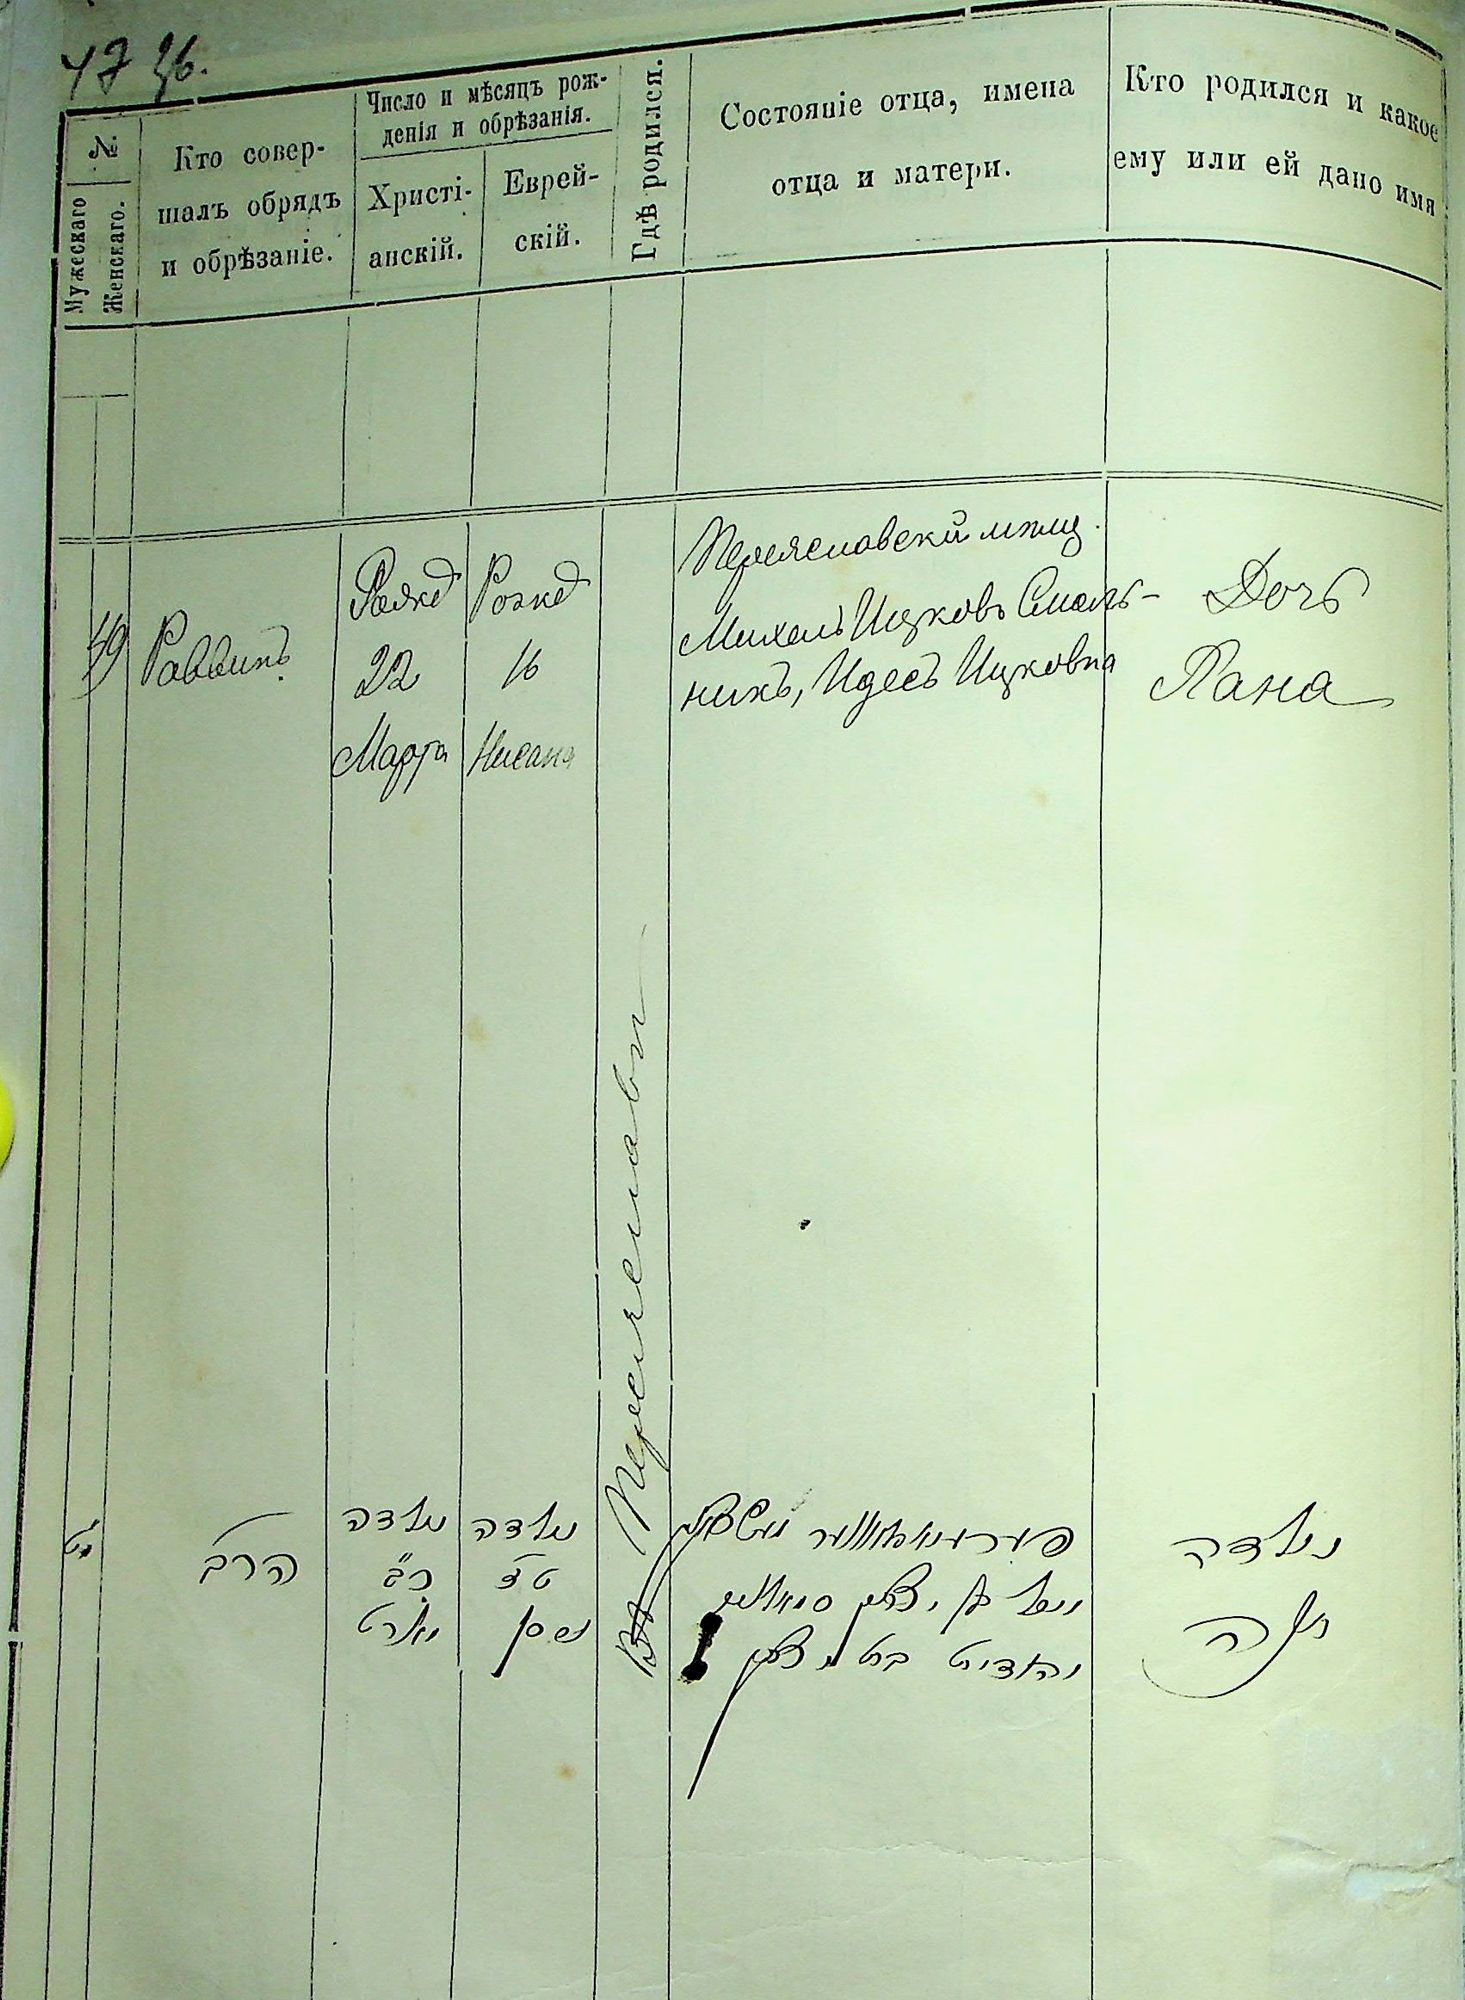 47 зв.
№
Мужескаго
Женскаго.
Кто совер-
шалъ обрядъ
и обрѣзаніе.
Число и мѣсяцъ рож-
денія и обрѣзанія.
Христі-
анскій.
Еврей-
скій.
Гдѣ родился.
Состояніе отца, имена
отца и матери.
Кто родился и какое
ему или ей дано имя
49
Раввинъ.
Рожд
22
Марта
Рожд
16
Нисана
Въ Переяславѣ
Переяславскій мѣщ.
Михель Ицковъ Смоль-
никъ, Идесъ Ицковна
Дочь
Хана
הרב
נולדה
כ״ב
מארט
נולדה
ט״ז
ניסן
בן יצחק
יהודית בת יצחק
נולדה
חנה